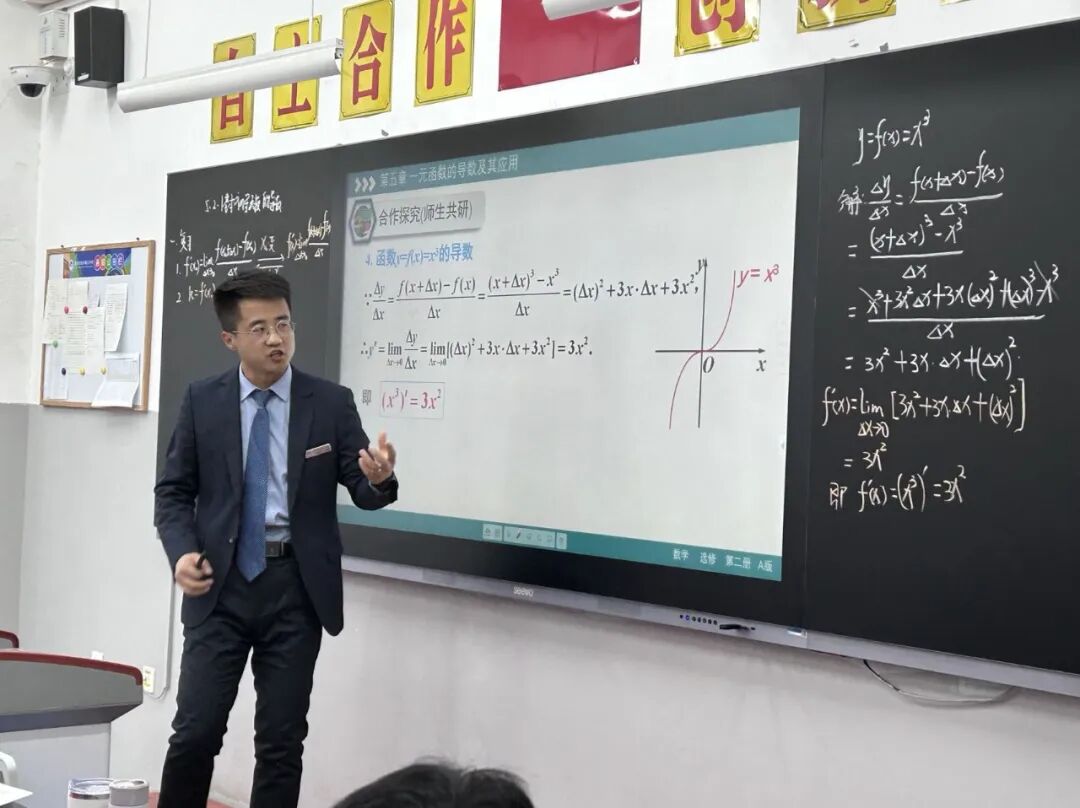 自主 合作 创
5.2.1
一、复习
1. f'(x)=lim
2. k=f'(x
第五章 一元函数的导数及其应用
合作探究(师生共研)
4. 函数y=f(x)=x³的导数
∵Δy/Δx=f(x+Δx)-f(x)/Δx=(x+Δx)³-x³/Δx=(Δx)²+3x·Δx+3x²,
∴y'=lim Δx→0 Δy/Δx=lim Δx→0[(Δx)²+3x·Δx+3x²]=3x².
即 (x³)'=3x²
y
y=x³
O
x
数学 选修 第二册 A版
seewo
y=f(x)=x³
解:Δy/Δx=f(x+Δx)-f(x)/Δx
=(x+Δx)³-x³/Δx
=x³+3x²Δx+3x(Δx)²+(Δx)³-x³/Δx
=3x²+3x·Δx+(Δx)².
f'(x)=lim Δx→0[3x²+3x·Δx+(Δx)²]
=3x²
即 f'(x)=(x³)'=3x²